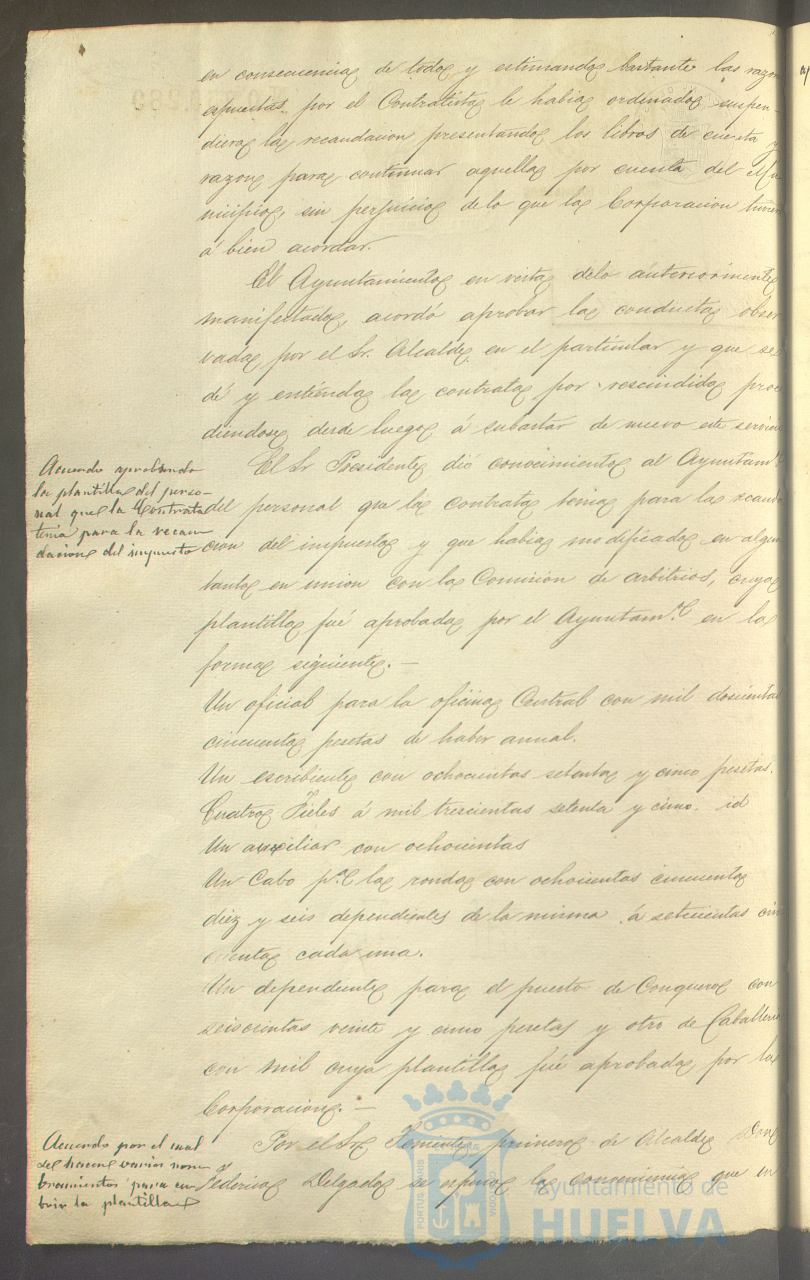 en consecuencia de todo y estimando bastante las razon
espuestas por el Contratista le habia ordenado suspen-
diera la recaudacion presentando los libros de cuenta y
razon para continuar aquella por cuenta del Mu
nicipio, sin perjuicio de lo que la Corporacion tuvier
á bien acordar.
El Ayuntamiento en vista delo anteriormente
manifestado, acordó aprobar la conducta obser
vada por el Sr. Alcalde en el particular y que se
dé y entienda la contrata por rescindida proce
diendose desde luego á subastar de nuevo este servicio
Acuerdo aprobando
la plantilla del perso-
nal que la Contrata
tenia para la recau
dacion del impuesto
El Sr Presidente dió conocimiento al Ayuntam.
del personal que la contrata tenia para la recauda
cion del impuesto y que habia modificado en algun
tanto en union con la Comision de arbitrios, cuya
plantilla fué aprobada por el Ayuntam.to en la
forma siguiente.—
Un oficial para la oficina Central con mil doscientas
cincuenta pesetas de haber annal.
Un escribiente con ochocientas setenta y cinco pesetas.
Cuatro Fieles á mil trescientas setenta y cinco. id
Un auxiliar con ochocientas
Un Cabo p.a la ronda con ochocientas cincuenta
diez y seis dependientes de la misma á setecientas cin
cuenta cada una.
Un dependiente para el puesto de Conquero con
seiscientas veinte y cinco pesetas y otro de Caballeria
con mil cuya plantilla fué aprobada por la
Corporacion.—
Acuerdo por el cual
se hacen varios nom
bramientos para cu
brir la plantilla
Por el Sr Teniente primero de Alcalde Don
Federico Delgado se espuso la conveniencia que en
Ayuntamiento de
HUELVA